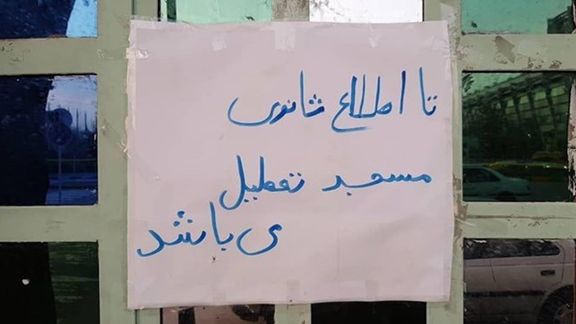 تا اطلاع ثانوی
مسجد تعطیل
می باشد